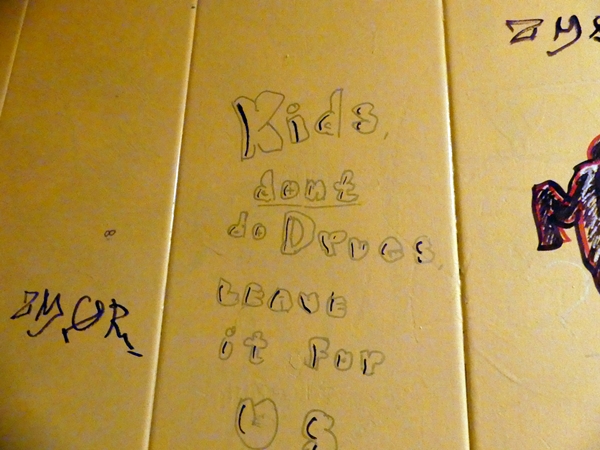 Kids,
dont
do Drugs,
LEAVE
it For
US